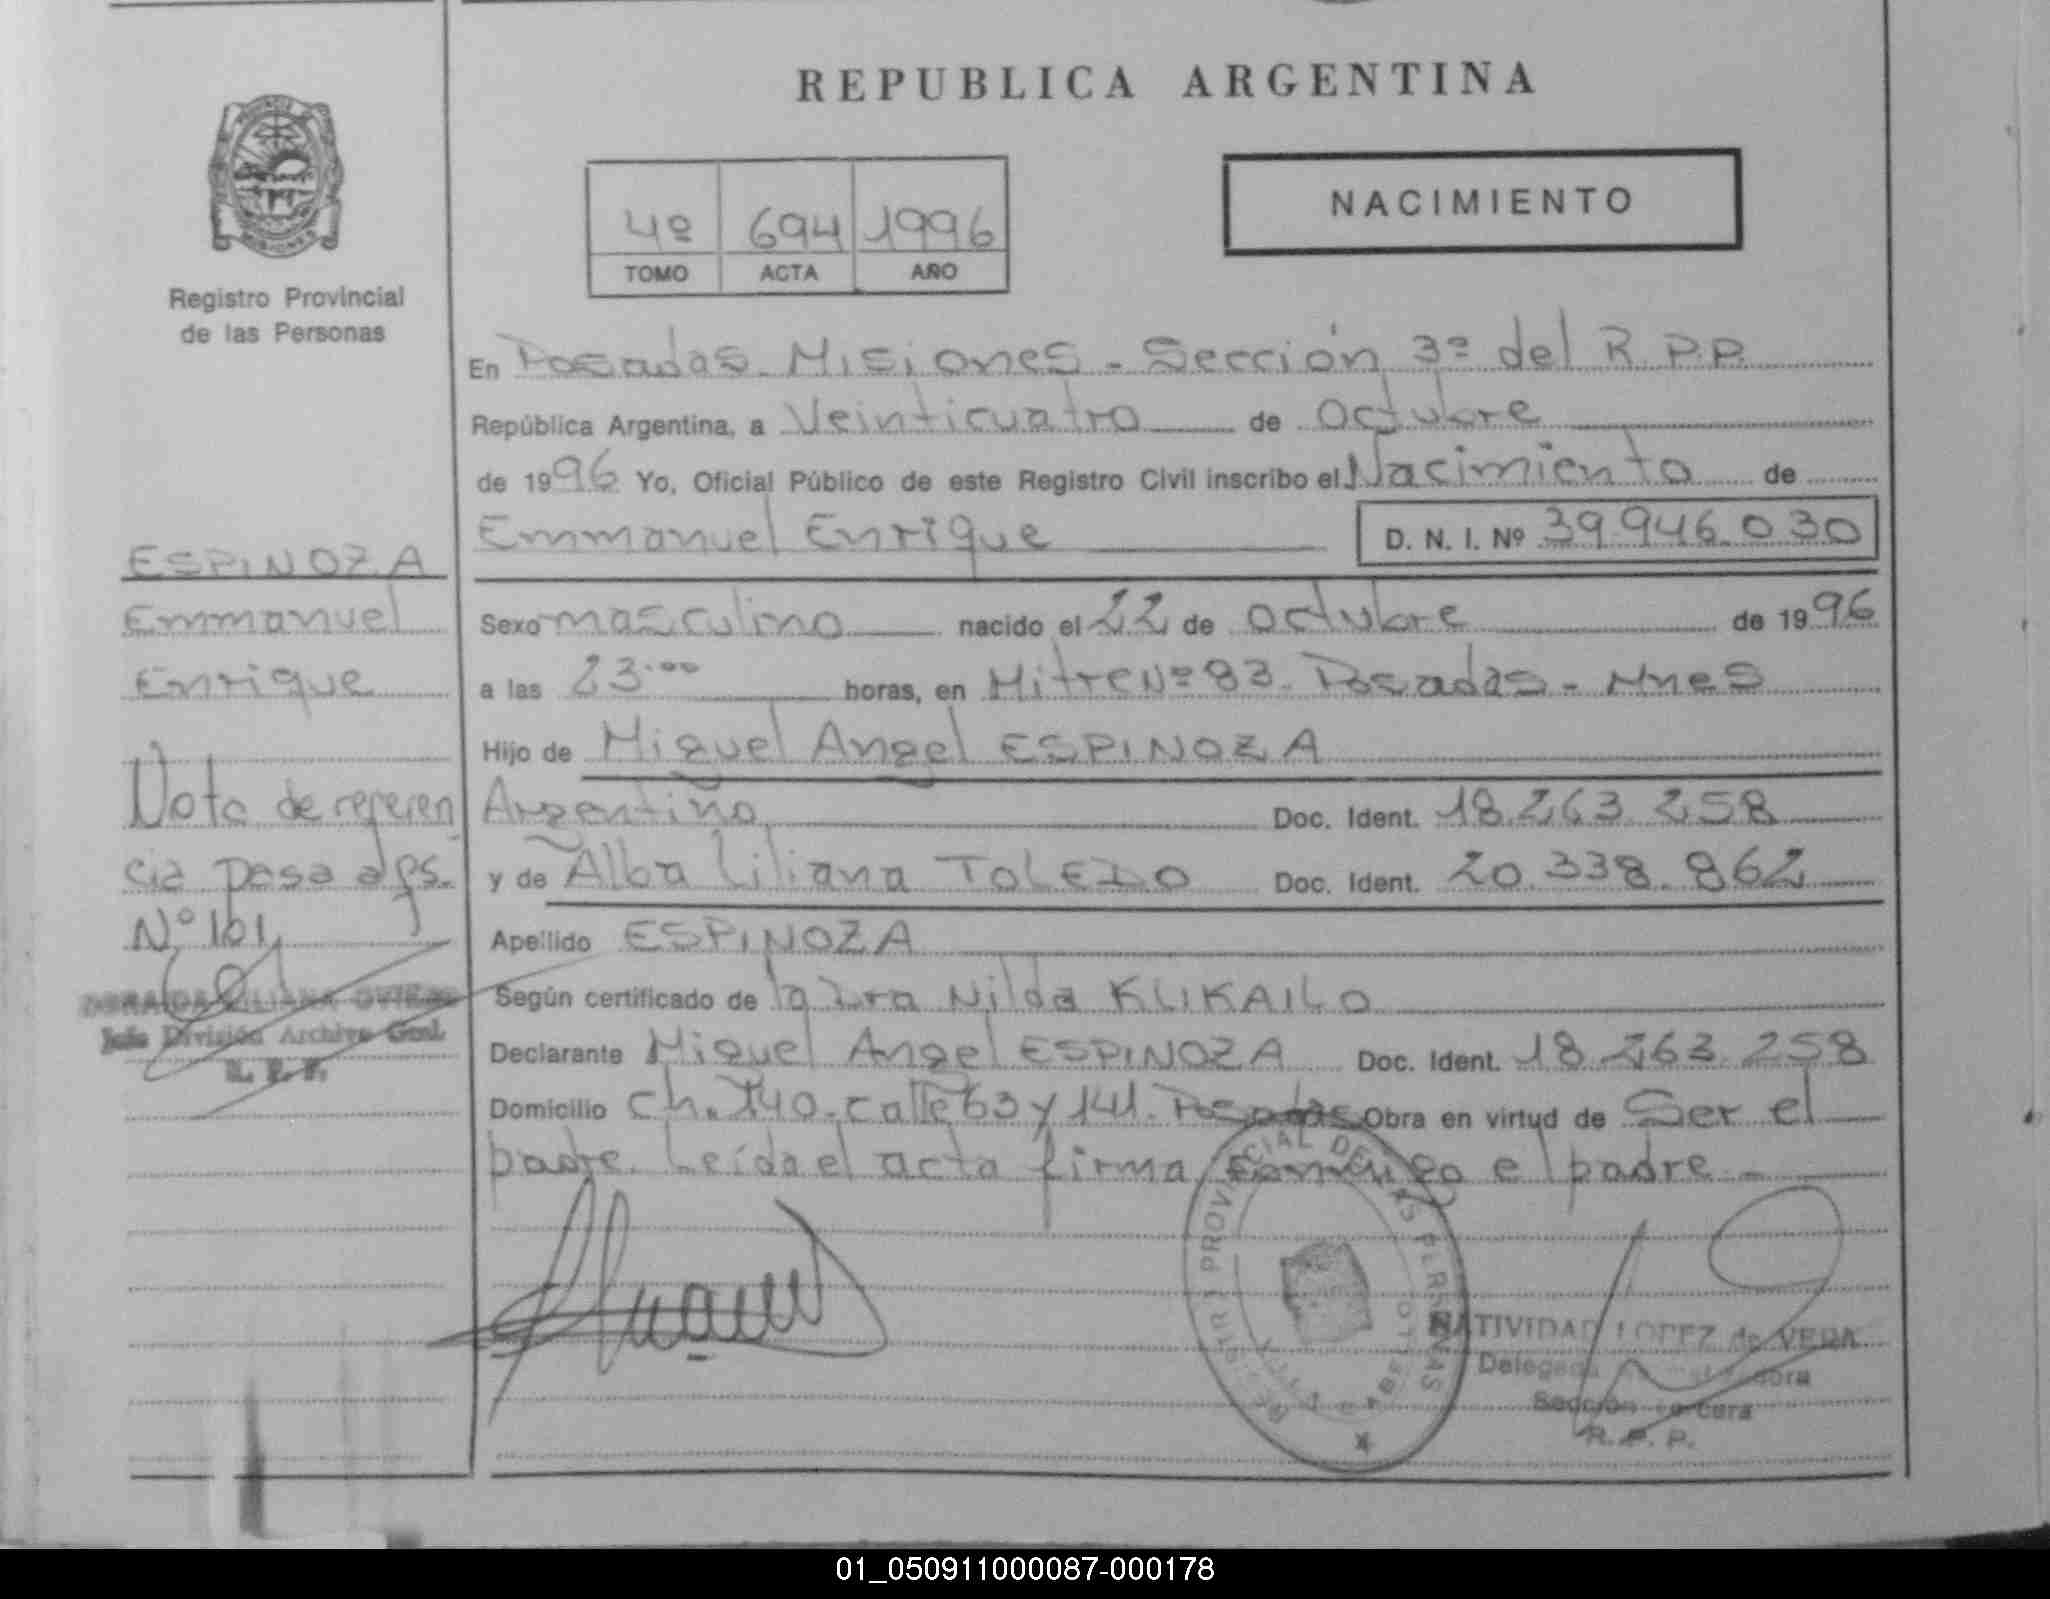 REPUBLICA ARGENTINA
NACIMIENTO
4º 694 1996
TOMO ACTA AÑO
Registro Provincial
de las Personas
En Posadas Misiones - Sección 3ª del R.P.P.
República Argentina, a Veinticuatro de Octubre
de 1996 Yo, Oficial Público de este Registro Civil inscribo el Nacimiento de
Emmanuel Enrique D. N. I. Nº 39.946.030
Sexo masculino nacido el 22 de Octubre de 1996
a las 23.00 horas, en Mitre Nº 83. Posadas - Mnes
Hijo de Miguel Angel ESPINOZA
Argentino Doc. Ident. 18.263.258
y de Alba Liliana TOLEDO Doc. Ident. 20.338.862
Apellido ESPINOZA
Según certificado de la Dra Nilda KLIKAILO
Declarante Miguel Angel ESPINOZA Doc. Ident. 18.263.258
Domicilio Ch. 140. calle 63 y 141. Posadas Obra en virtud de Ser el
padre. Leída el acta firma conmigo el padre -
ESPINOZA
Emmanuel
Enrique
Nota de referen
cia pasa a fs.
Nº 101
LILIANA OVIEDO
Jefe División Archivo Gral.
R. P. P.
REGISTRO PROVINCIAL DE LAS PERSONAS
NATIVIDAD LOPEZ de VERA
Delegada
Sección Tercera
R. P. P.
01_050911000087-000178